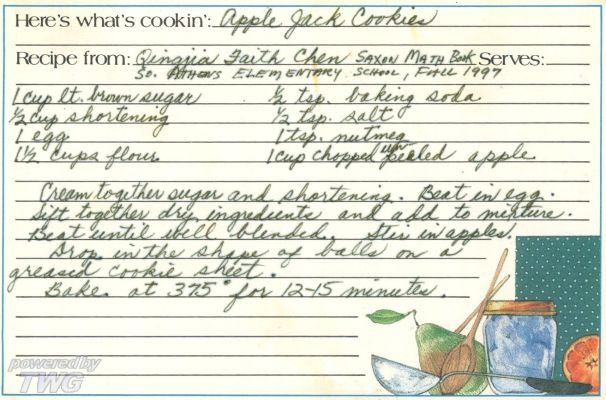 Here's what's cookin': Apple Jack Cookies
Recipe from: Qingjia Faith Chen SAXON MATH Book Serves:
So. ATHENS ELEMENTARY SCHOOL, FALL 1997
1 cup lt. brown sugar ½ tsp. baking soda
½ cup shortening ½ tsp. salt
1 egg 1 tsp. nutmeg
1½ cups flour 1 cup chopped unpeeled apple
Cream together sugar and shortening. Beat in egg.
Sift together dry ingredients and add to mixture.
Beat until well blended. Stir in apples.
Drop in the shape of balls on a
greased cookie sheet.
Bake at 375° for 12-15 minutes.
powered by
TWG